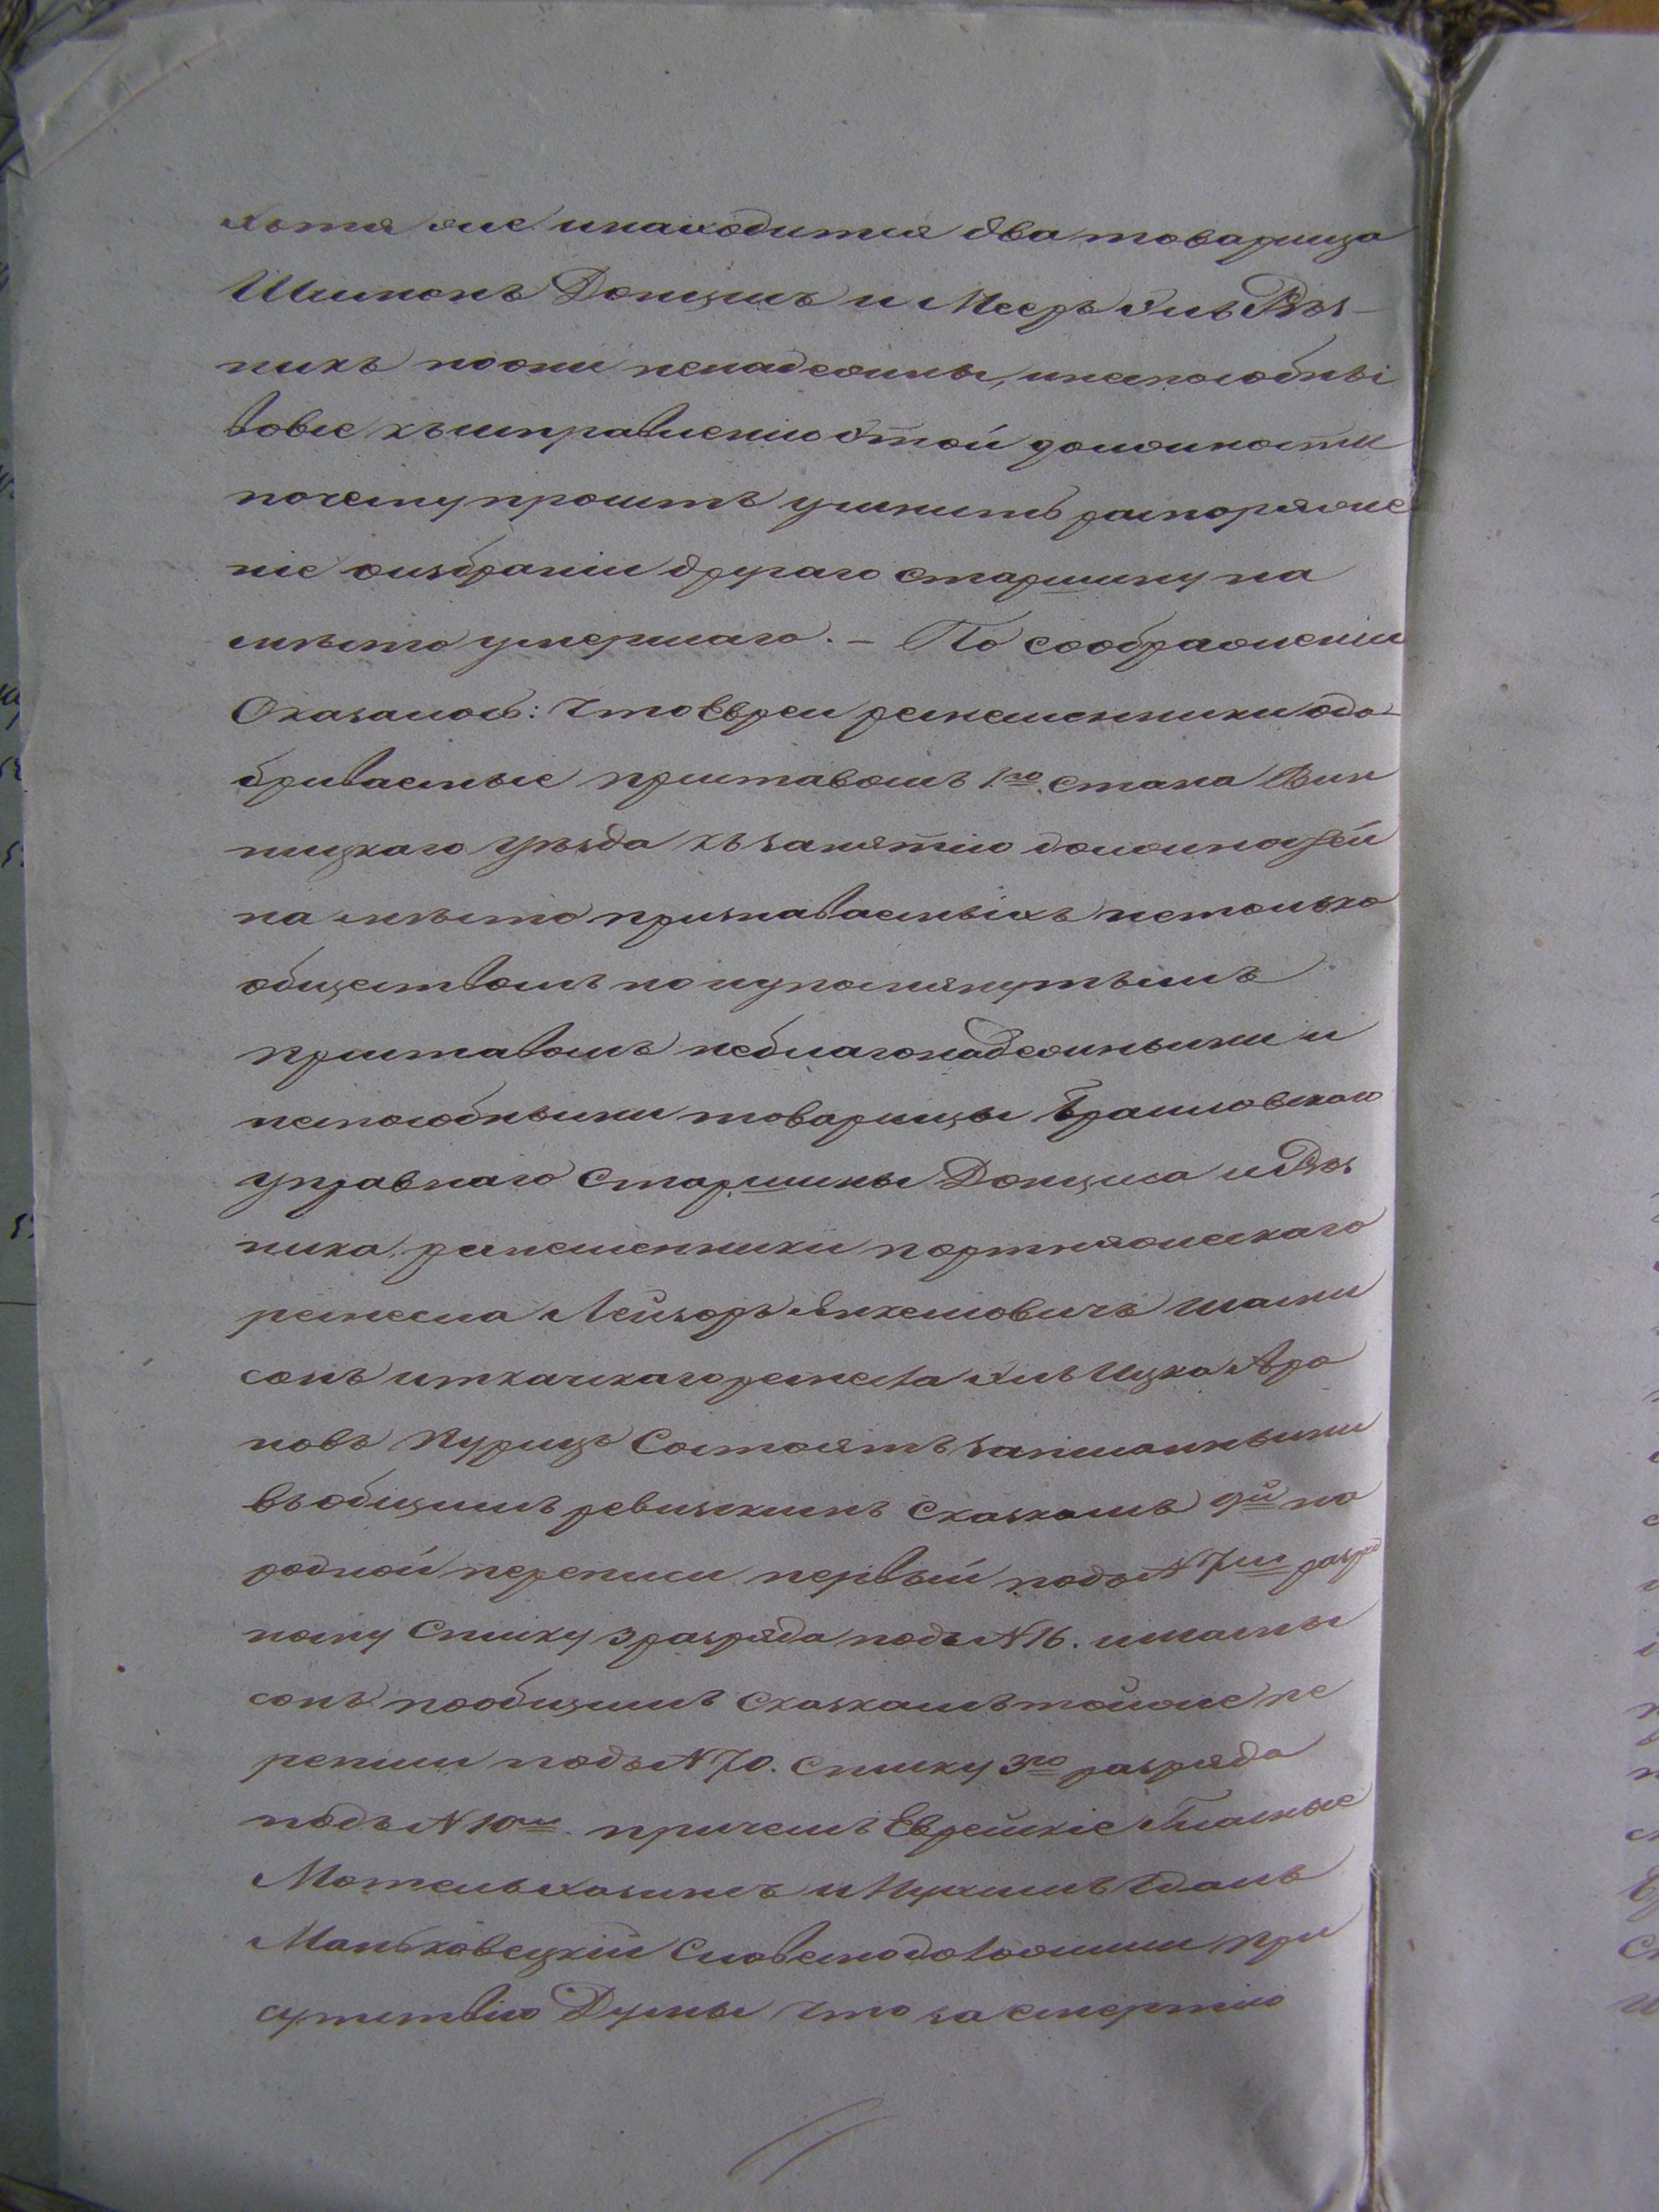 хотя же и находится два товарища
Шимонъ Донцисъ и Мееръ Эль Рѣз-
никъ но они ненадежны, и неспособны
вовсе къ исправленію этой должности
почему проситъ учинить распоряже
ніе о избраніи другаго старшину на
мѣсто умершаго. – По соображеніи
Оказалось: что Евреи ремесленники одо-
бриваемые приставомъ 1го. стана Вин
ницкаго уѣзда къ занятію должностей
на мѣсто признаваемыхъ не только
обществомъ но и упомянутымъ
приставомъ неблагонадежными и
неспособными товарищы Браиловскаго
управнаго старшины Донциса и Рѣз
ника, ремесленники портняжескаго
ремесла Лейзоръ Янкелевичъ Шами
сонъ и ткачскаго ремесла Эль Ицко Аро
новъ Курицъ Состоятъ записанными
въ общимъ ревизскимъ сказкамъ 9й на
родной переписи первый подъ N 7м разряд
ному списку 3 разряда подъ N 16. и Шамы
сонъ по общимъ сказкамъ той же пе
реписи подъ N 70. списку 3го разряда
подъ N 10м. причемъ Еврейскіе Гласные
Мотель Хазинъ и Нухимъ
Маньковецкій Словесно доложили при
сутствію Думы что за смертію